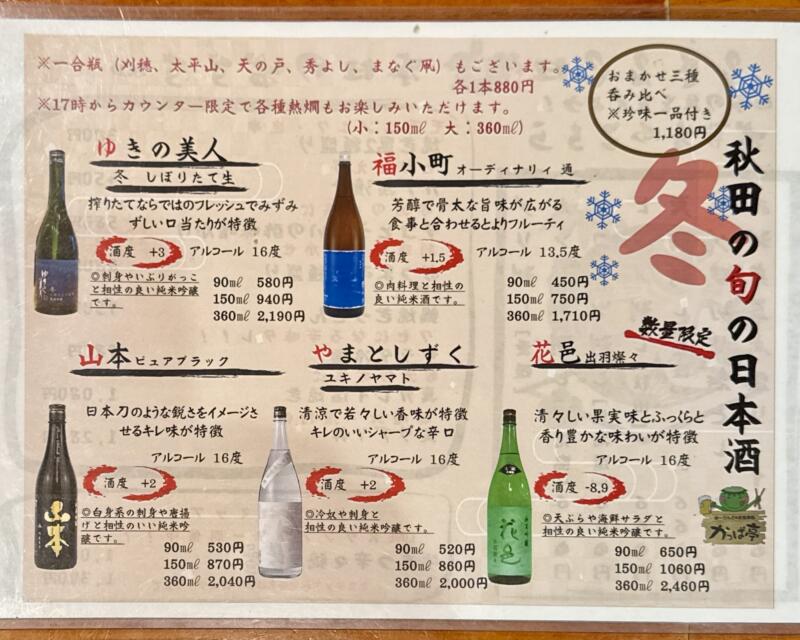 ※一合瓶（刈穂、太平山、天の戸、秀よし、まなぐ凧）もございます。
各1本880円
※17時からカウンター限定で各種熱燗もお楽しみいただけます。
(小：150㎖ 大：360㎖)
おまかせ三種
呑み比べ
※珍味一品付き
1,180円
秋田の旬の日本酒
冬
数量限定
ゆきの美人
冬 しぼりたて生
搾りたてならではのフレッシュでみずみ
ずしい口当たりが特徴
酒度 +3 アルコール 16度
◎刺身やいぶりがっこ
と相性の良い純米吟醸
です。
90㎖ 580円
150㎖ 940円
360㎖ 2,190円
福小町 オーディナリィ 通
芳醇で骨太な旨味が広がる
食事と合わせるとよりフルーティ
酒度 +1.5 アルコール 13.5度
◎肉料理と相性の
良い純米酒です。
90㎖ 450円
150㎖ 750円
360㎖ 1,710円
山本 ピュアブラック
日本刀のような鋭さをイメージさ
せるキレ味が特徴
アルコール 16度
酒度 +2
◎白身系の刺身や唐揚
げと相性のいい純米吟
醸です。
90㎖ 530円
150㎖ 870円
360㎖ 2,040円
山本
やまとしずく
ユキノヤマト
清涼で若々しい香味が特徴
キレのいいシャープな辛口
アルコール 16度
酒度 +2
◎冷奴や刺身と
相性の良い純米吟醸です。
90㎖ 520円
150㎖ 860円
360㎖ 2,000円
花邑 出羽燦々
清々しい果実味とふっくらと
香り豊かな味わいが特徴
アルコール 16度
酒度 -8.9
◎天ぷらや海鮮サラダと
相性の良い純米吟醸です。
90㎖ 650円
150㎖ 1060円
360㎖ 2,460円
花邑
かっぱ亭